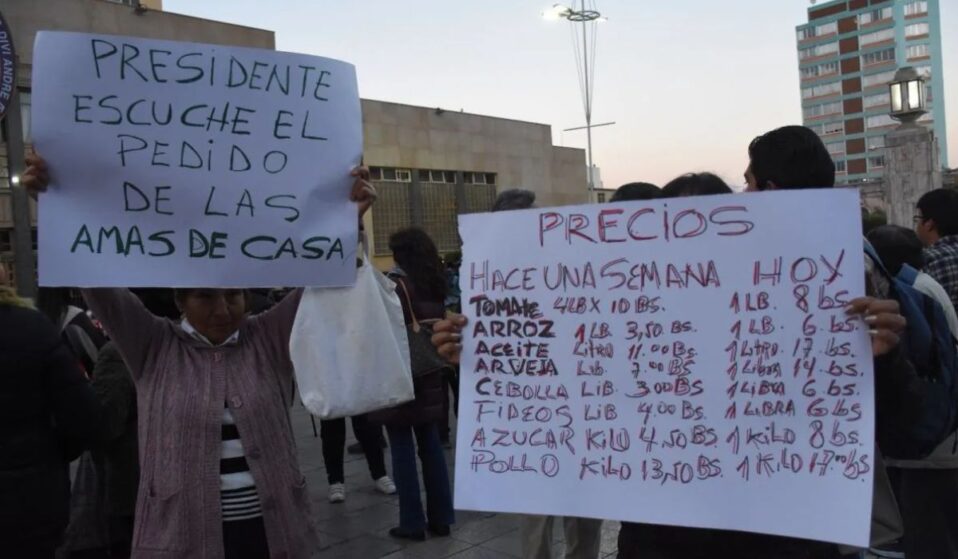 PRESIDENTE
ESCUCHE EL
PEDIDO
DE LAS
AMAS DE CASA
PRECIOS
HACE UNA SEMANA HOY
TOMATE 4LB X 10 BS. 1 LB. 8 bs.
ARROZ 1 LB. 3,50 BS. 1 LB. 6 bs.
ACEITE LITRO 11.00 BS. 1 LITRO. 17 bs.
ARVEJA LIB. 7.00 BS. 1 LIBRA 14 bs.
CEBOLLA LIB. 3.00 BS. 1 LIBRA 6 bs.
FIDEOS LIB 4.00 BS. 1 LIBRA 6 bs
AZUCAR KILO 4.50 BS. 1 KILO 8 bs.
POLLO KILO 13,50 BS. 1 KILO 17.00 bs.
DIVI ANDRE